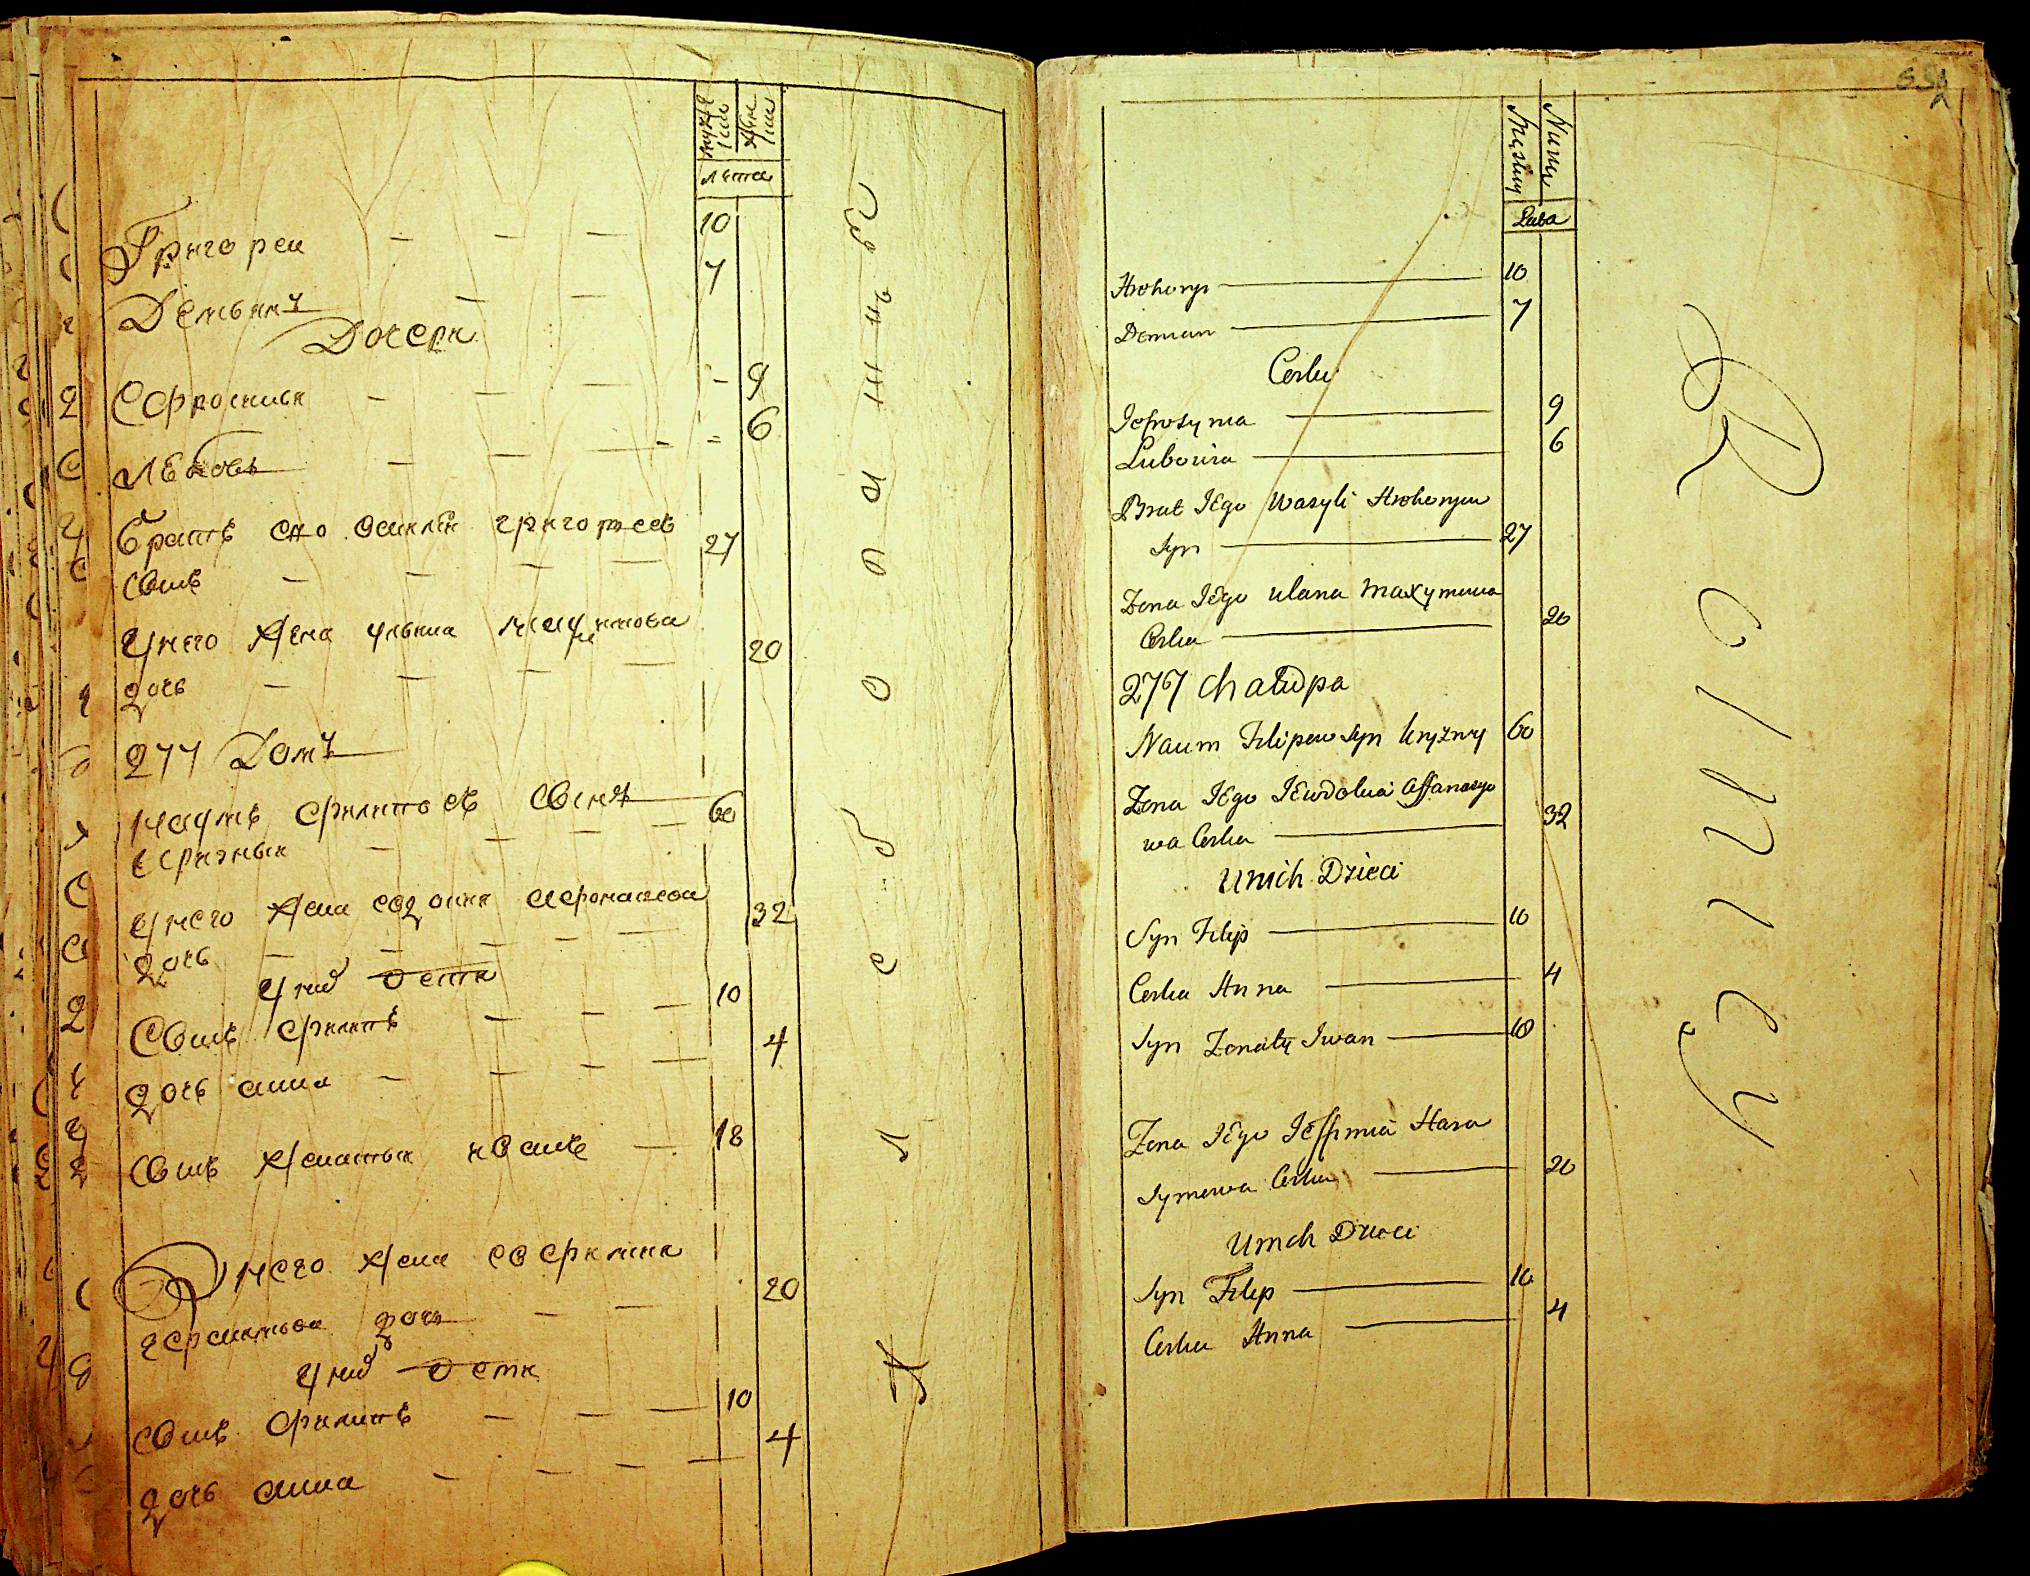 мужес
кии
жен
кии
лѣта
Григореи 10
Демьянъ 7
Дочери
Ефросинья - 9
Любовь = 6
братъ его василеи григорьевъ
сынъ 27
у него жена ульяна максимова
дочь 20
277 Домъ
наумъ филипоѳъ сынъ 60
у него жена евдокия афонасева
дочь 32
у них дети
сынъ филипъ 10
дочь анна 4
сынъ женатыи иванъ 18
У него жена евфимия
герасимова дочь 20
у них дети
сынъ филипъ 10
дочь анна 4
Хлебопашцы
Męskiey
Lata
Hrehory 10
Demian 7
Corki
Jefrosynia 9
Lubowia 6
Brat Jego Wasyli Hrehoryew
Syn 27
Zona Jego Ulana Maxymowa
Corka 20
277 Chałupa
Naum Filipow Syn 60
Zona Jego Jewdokia Affanasye
wa Corka 32
U nich Dzieci
Syn Filip 10
Corka Anna 4
Syn Zonaty Iwan 18
Zona Jego Jeffimia Hara
symowa Corka 20
U nich Dzieci
Syn Filip 10
Corka Anna 4
Rolnicy